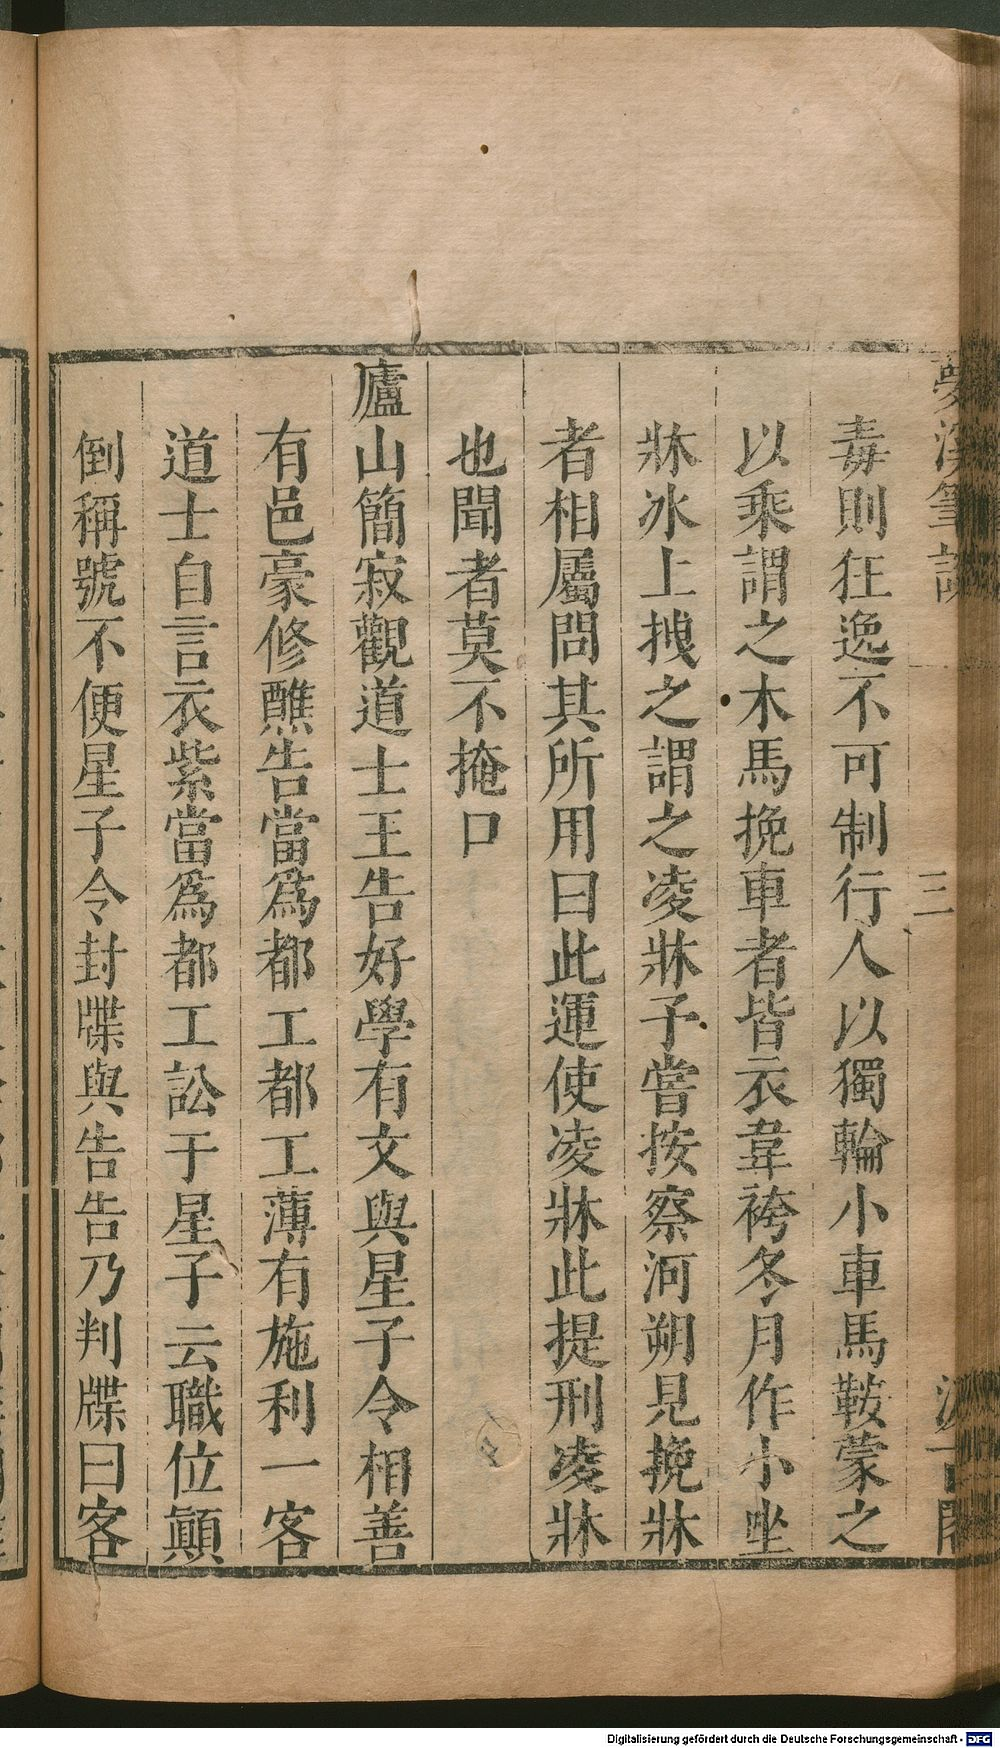 夢溪筆談
三
汲古閣
毒則狂逸不可制行人以獨輪小車馬鞍蒙之
以乘謂之木馬挽車者皆衣韋袴冬月作小坐
牀冰上拽之謂之凌牀子嘗按察河朔見挽牀
者相屬問其所用曰此運使凌牀此提刑凌牀
也聞者莫不掩口
廬山簡寂觀道士王告好學有文與星子令相善
有邑豪修醮告當爲都工都工薄有施利一客
道士自言衣紫當爲都工訟于星子云職位顛
倒稱號不便星子令封牒與告告乃判牒曰客
Digitalisierung gefördert durch die Deutsche Forschungsgemeinschaft - DFG